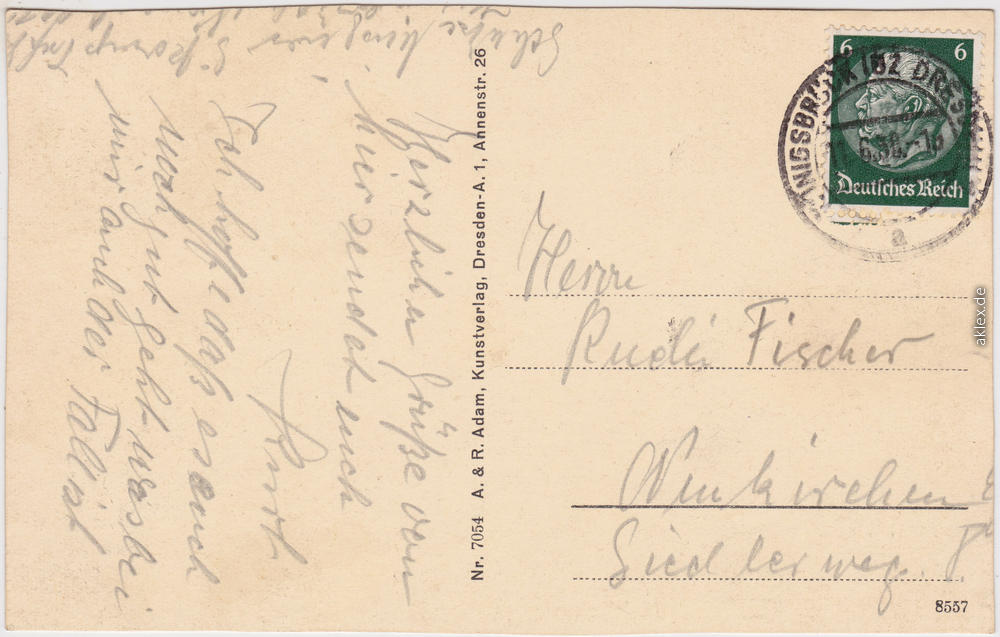 Herzlichen Grüße von
hier sendet euch
Kurt
Ich hoffe daß es euch
noch gut geht was bei
mir auch der Fall ist
Schütze Kurt
Nr. 7054 A. & R. Adam, Kunstverlag, Dresden-A. 1, Annenstr. 26
6 6
Deutsches Reich
KÖNIGSBRÜCK (BZ DRESDEN)
a
Herrn
Rudi Fischer
Neukirchen
Siedlerweg
8557
aklex.de